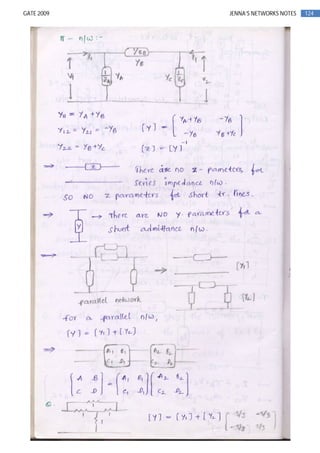 GATE 2009
JENNA'S NETWORKS NOTES 124
π - n/w :-
Y_B
Y_A Y_C
Y11 = Y_A + Y_B
Y12 = Y21 = -Y_B
[Y] = [ Y_A+Y_B -Y_B
-Y_B Y_B+Y_C ]
Y22 = Y_B + Y_C
[Z] = [Y]^-1
⇒ Z
There are no Z- pameters for
series impedance n/w.
SO NO Z parameters for short tr. lines.
⇒ Y → There are NO Y parameters for a
shunt admittance n/w.
⇒
[Y1]
[Y2]
parallel network
for a parallel n/w,
[Y] = [Y1] + [Y2]
⇒ A1 B1 C1 D1 A2 B2 C2 D2
[ A B
C D ] = [ A1 B1
C1 D1 ] [ A2 B2
C2 D2 ]
[Y] = [Y1] + [Y2]